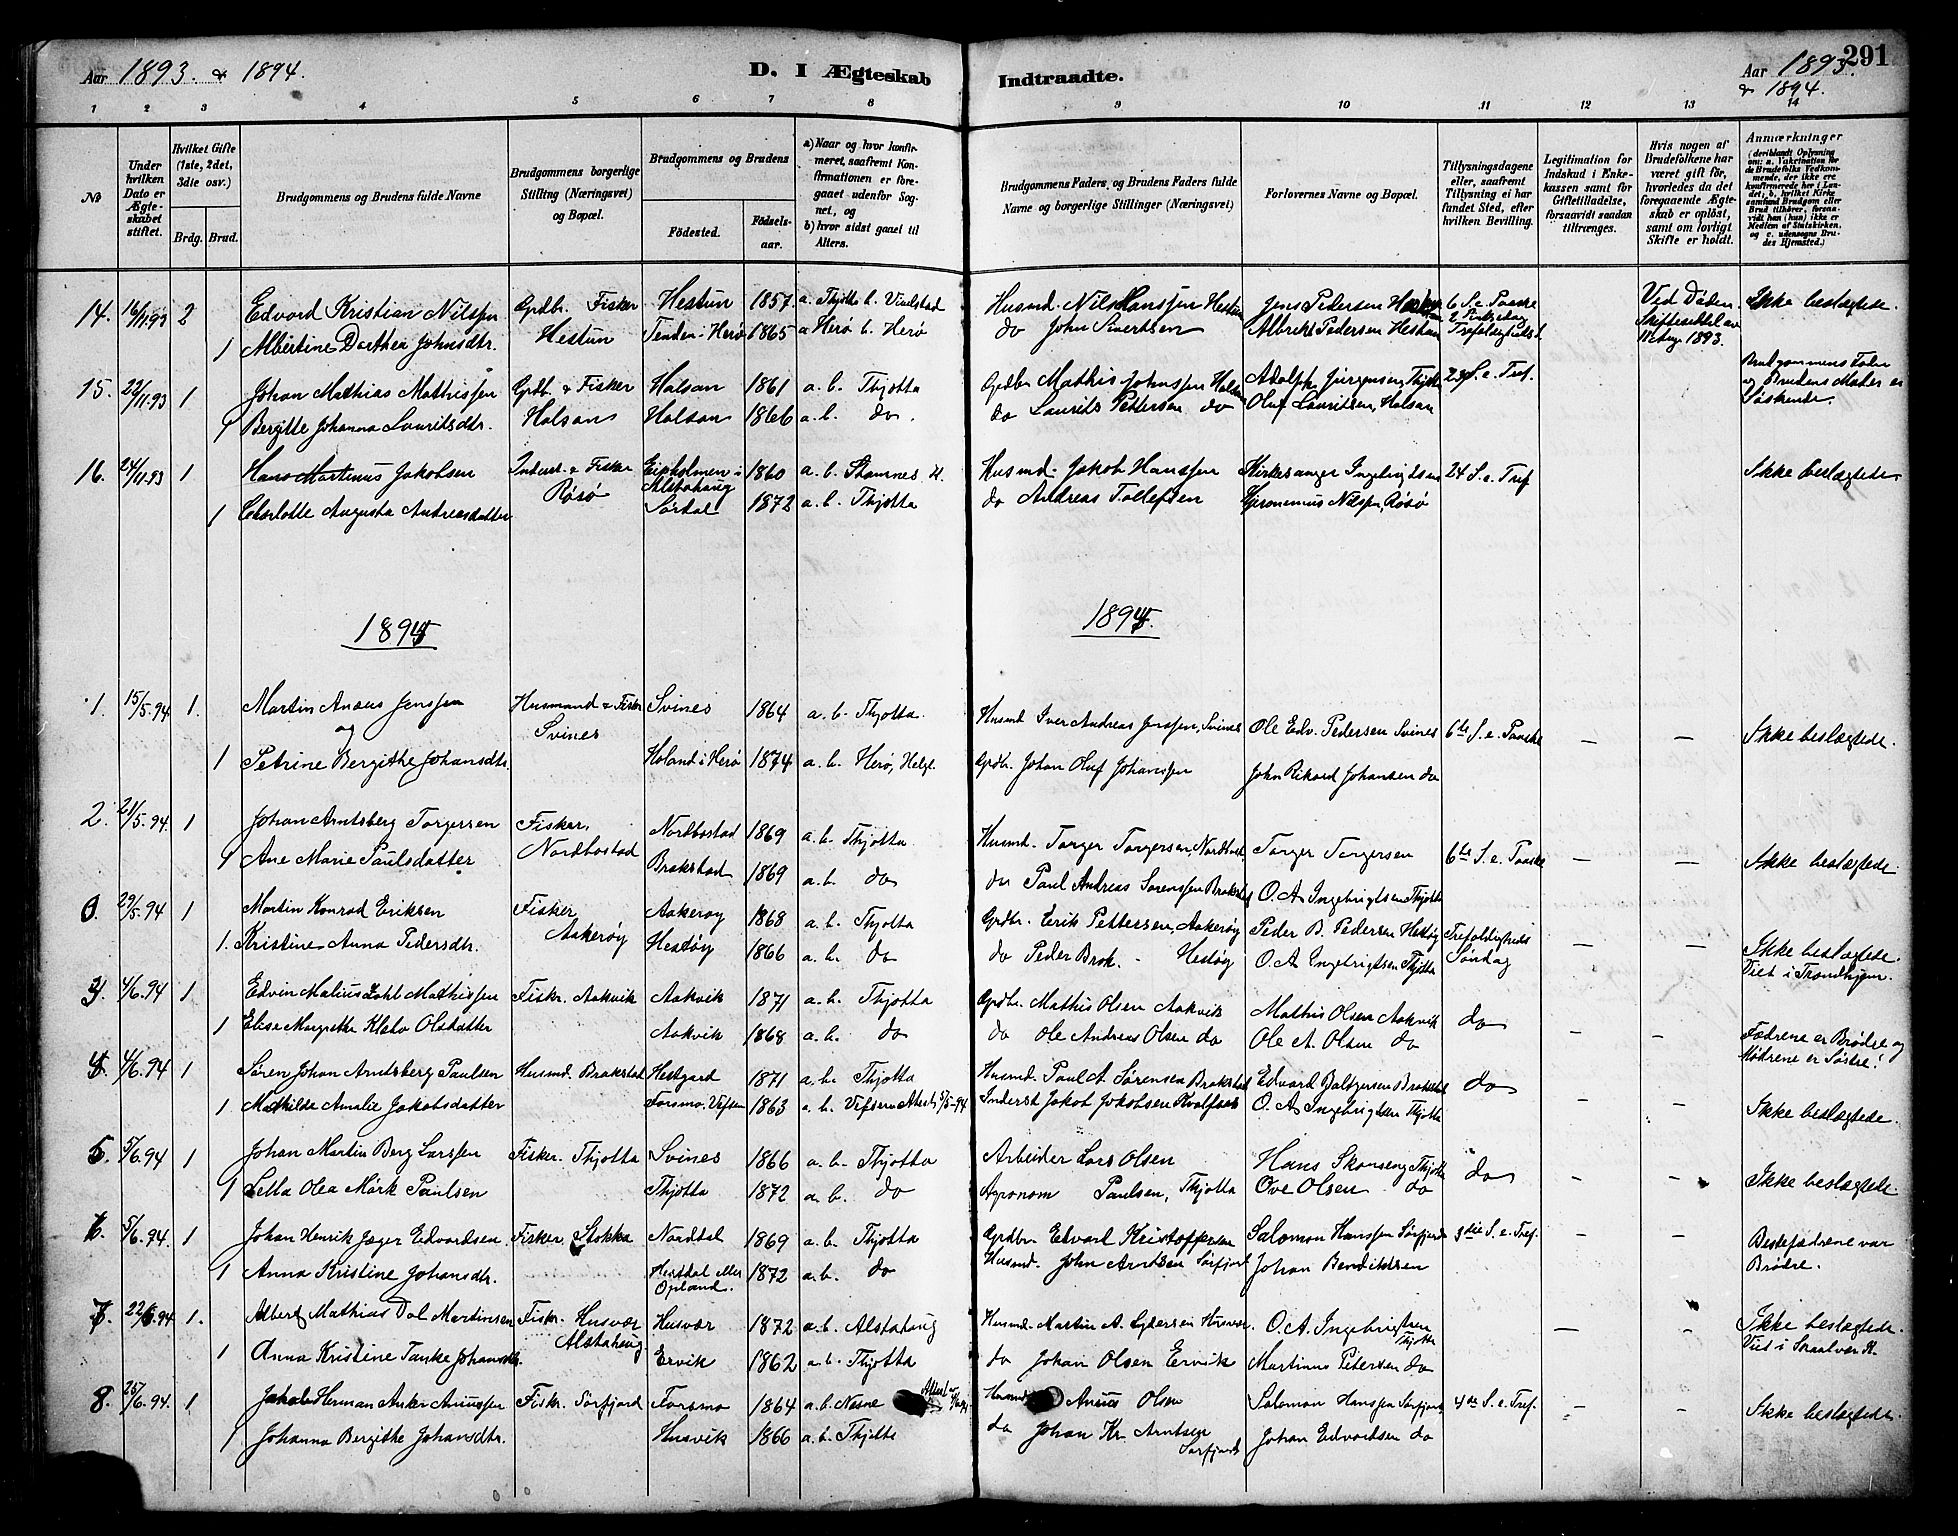 Aar 1893. & 1894.
D. I Ægteskab
Indtraadte.
Aar 1893.
& 1894.
291
1 2 3 4 5 6 7 8 9 10 11 12 13 14
No
Under hvilken Dato er Ægteskabet stiftet.
Hvilket Gifte (1ste, 2det, 3die osv.)
Brdg. Brud.
Brudgommens og Brudens fulde Navne
Brudgommens borgerlige Stilling (Næringsvei) og Bopæl.
Brudgommens og Brudens
Fødested.
Fødselsaar.
a) Naar og hvor konfirmeret, saafremt Konfirmationen er foregaaet udenfor Sognet, og b) hvor sidst gaaet til Alters.
Brudgommens Faders, og Brudens Faders fulde Navne og borgerlige Stillinger (Næringsvei)
Forlovernes Navne og Bopæl.
Tillysningsdagene eller, saafremt Tillysning ei har fundet Sted, efter hvilken Bevilling.
Legitimation for Indskud i Enkekassen samt for Giftetilladelse, forsaavidt saadan tiltrænges.
Hvis nogen af Brudefolkene har været gift før, hvorledes da det foregaaende Ægteskab er opløst, samt om lovligt Skifte er holdt.
Anmærkninger (deriblandt Oplysning om: a. Vakcination for de Brudefolks Vedkommende, der ikke ere konfirmerede her i Landet; b. hvilket Kirkesamfund Brudgom eller Brud tilhører, forsaavidt han (hun) ikke er Medlem af Statskirken, og c. udensogns Brudes Hjemsted.)
14. 16/11 93 2 Edvard Kristian Nilssen Grdbr. Fisker Hestun 1857 a. Thjøtta b. Vindstad Husmd. Nils Hanssen Hestun Jens Pedersen Hestun 6 S. e. Paaske Ved Døden Ikke beslægtede.
1 Albertine Dorthea Johnsdtr. Hestun Tenden i Herø 1865 a Herø b. Herø do John Sivertsen Albrikt Pedersen Hestun Skifteseddel av 1893.
15. 22/11 93 1 Johan Mathias Mathissen Grdb. & Fisker Halsan 1861 a. b. Thjøtta Grdbr Mathis Johnssen Halsan Adolph Jørgensen Thjøtta 23 S. e. Tref. Brudgommens Fader
1 Bergitte Johanna Lauritsdtr. Halsan Halsan 1866 a. b. do. do Laurits Pettersen do Oluf Lauritsen, Halsan og Brudens Moder er Søskende.
16. 24/11 93 1 Hans Martinus Jakobsen Inderst. & Fisker 1860 a. b. Stamnes Husmd. Jakob Hanssen Kirkesanger Ingebrigtsen 24 S. e. Tref Ikke beslægtede
Røsø Alstahaug
1 Charlotte Augusta Andreasdatter Sørdal 1872 a. b. Thjøtta do Andreas Tollefsen Hyronimus Nilssen, Røsø
1894.
1894.
1. 15/5. 94 1. Martin Anæus Jenssen Husmand & Fisker Svines 1864 a. b. Thjøtta. Husmd Iver Andreas Jenssen, Svines Ole Edv. Pedersen Svines 6te S. e. Paaske — — Ikke beslægtede.
og Svines
1 Petrine Bergithe Johansdtr. Høland i Herø 1874 a. b. Herø, Helgl. Grdb. Johan Oluf Johanssen John Rikard Johansen do
2. 21/5. 94. 1 Johan Arntsberg Torgersen Fisker, Nordbostad 1869 a. b. Thjøtta Husmd. Torger Torgersen, Nordbostad Torger Torgersen 6te S. e. Paaske — — Ikke beslægtede
1 Ane Marie Paulsdatter Nordbostad Brakstad 1869 a. b. do do Paul Andreas Sørenssen Brakstad O. A Ingebrigtsen Thjøtta
29/5. 94 1 Martin Konrad Eriksen Fisker Aakerøy 1868 a. b. Thjøtta Grdbr. Erik Pettersen, Aakerøy Peder B. Pedersen Hestøy Trefoldigheds — — Ikke beslægtede.
1. Kristine Anna Pedersdtr. Aakerøy Hestøy 1866 a. b. do do Peder Brok. - Hestøy O. A Ingebrigtsen Thjøtta Søndag Viet i Trondhjem.
3. 4/6. 94 1 Edvin Malius Zahl Mathissen Fiskr. Aakvik Aakvik 1871 a. b. Thjøtta Grdbr. Mathis Olsen Aakvik Mathis Olsen Aakvik do — —
1 Elise Margrethe Klæbo Olsdatter Aakvik 1868 a. b. do do Ole Andreas Olsen do Ole A. Olsen do Fædrene er Brødre og Mødrene er Søstre!
4. 4/6. 94 1 Søren Johan Arntsberg Paulsen Husmd. Brakstad Hestgard 1871 a. b. Thjøtta Husmd. Paul A Sørensen Brakstad Edvard Baltzersen Brakstad do — —
1 Mathilde Amalie Jakobsdatter Forsmo, Vefsen 1863 a. b. Vefsen Attest 5/5-94 Inderst Jakob Jakobsen O. A Ingebrigtsen Thjøtta Ikke beslægtede.
5. 5/6. 94 1 Johan Martin Berg Larssen Fisker. Thjøtta Svines 1866 a. b. Thjøtta Arbeider Lars Olsen Hans Skonseng Thjøtta do — —
1 Letta Olea Mørk Paulsen Thjøtta 1872 a. b. do Agronom Paulsen, Thjøtta Ove Olsen do Ikke beslægtede
6. 5/6. 94. 1 Johan Henrik Jæger Edvardsen. Fisker. Stokka Nordtal 1869 a. b. Thjøtta Grdbr Edvard Kristoffersen Salomon Hanssen Sørfjord 3die S. e. Tref. — — Bestefædrene var
1 Anna Kristine Johansdtr. Hestdal eller Opland. 1872 a. b. do Husmd. John Arntsen Sørfjord Johan Bendiktsen Brødre.
7. 22/6. 94 1. Albert Mathias Dal Martinsen Fisker. Husvær Husvær 1872 a. b. Alstahaug Husmd. Martin A. Lydersen Husvær O. A. Ingebrigtsen Thjøtta — — Ikke beslægtede.
Alstahaug.
1 Anna Kristine Tanke Johansdtr. Ervik 1862 a. b. Thjøtta do Johan Olsen Ervik Martinus Petersen do Viet i Sraalvær K.
8. 25/6. 94. 1 Jakob Herman Anker Ariussen Fiskr. Sørfjord Forsmo 1864 a. b. Nesne Attest Husmd Arius Olsen Salomon Hanssen Sørfjord 4de S. e. Tref. — — Ikke beslægtede.
1 Johanna Bergithe Johansdtr. Husvik 1866 a. b. Thjøtta do Johan Kr. Arntsen Sørfjord Johan Edvardsen do